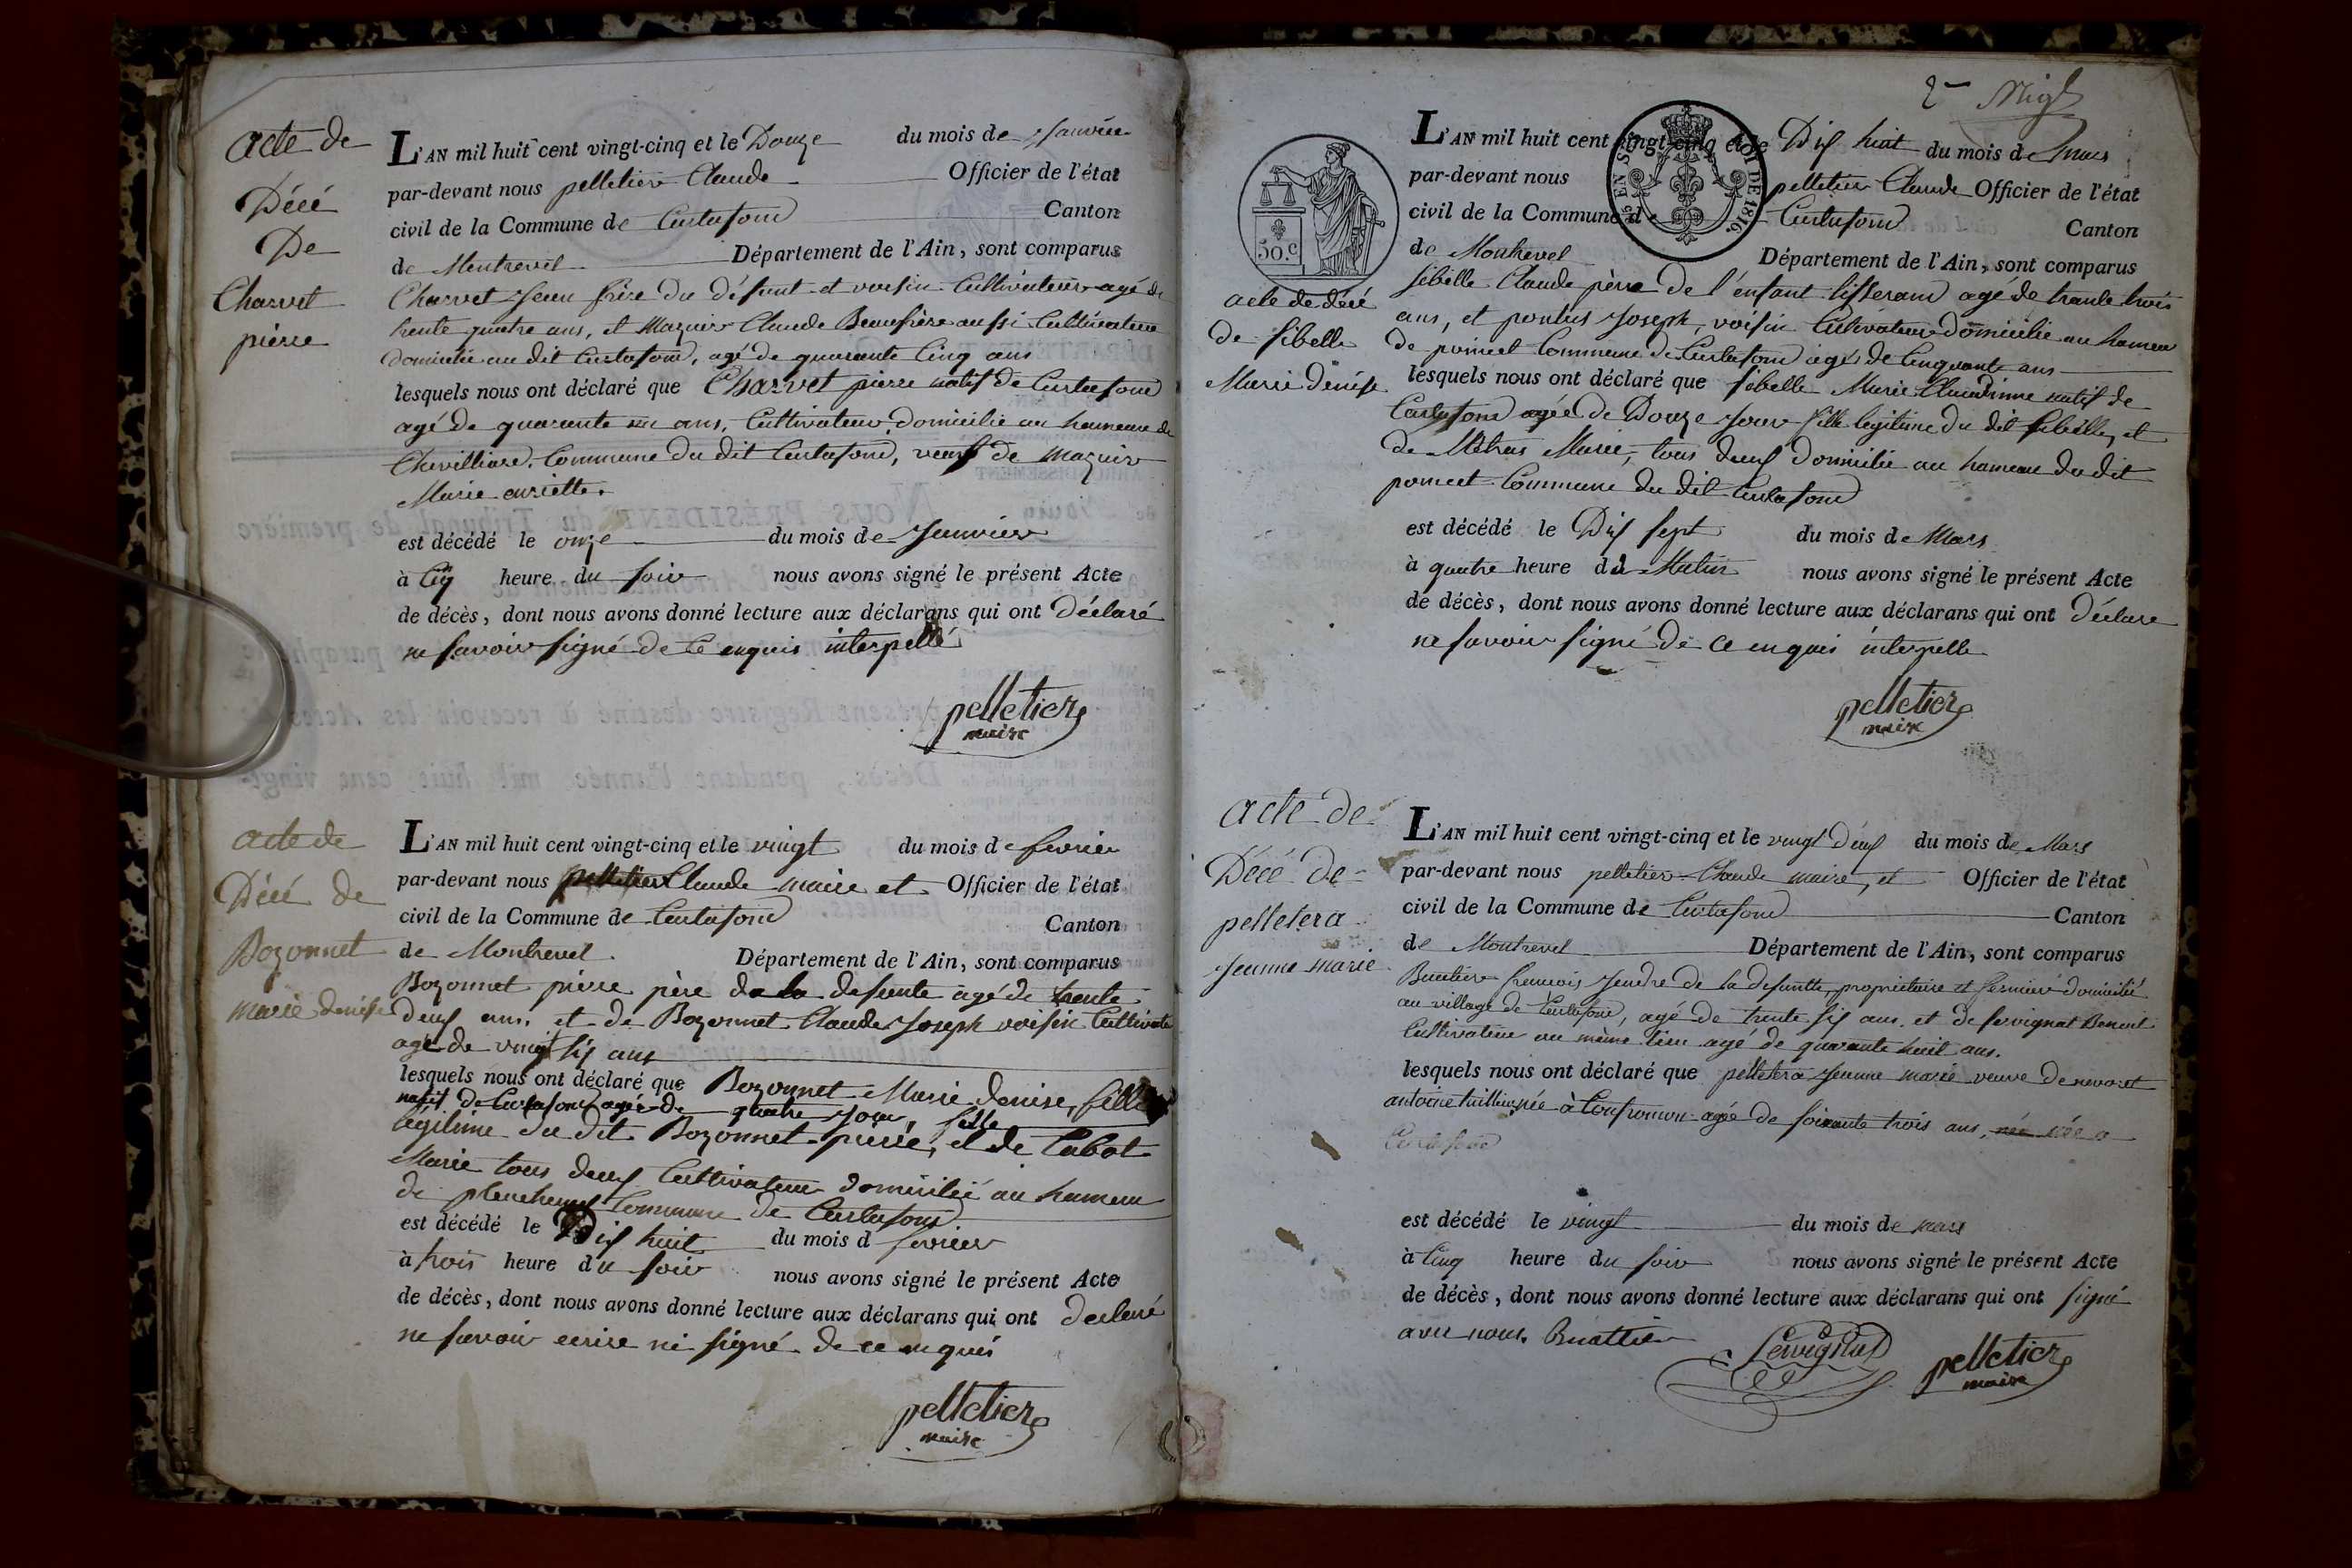 acte de
Décé
De
Charvet
pierre
L'AN mil huit cent vingt-cinq et le Douze du mois de Janvier
par-devant nous pelletier Claude Officier de l'état
civil de la Commune de Curtafond Canton
de Montrevel Département de l'Ain, sont comparus
Charvet Jean frère du défunt et voisin Cultivateur agé de
trente quatre ans, et Mazuir Claude Beaufrère aussi Cultivateur
domicilié au dit Curtafond, agé de quarante Cinq ans
lesquels nous ont déclaré que Charvet pierre natif de Curtafond
agé de quarante un ans, Cultivateur, domicilié au hameau de
Chevilliard, Commune du dit Curtafond, veuf de Mazuir
Marie
est décédé le onze du mois de Janvier
à Cinq heure du soir nous avons signé le présent Acte
de décès, dont nous avons donné lecture aux déclarans qui ont Déclaré
ne savoir signé de Ce enquis interpellé
pelletier
maire
acte de
Décé de
Bozonnet
marie denise
L'AN mil huit cent vingt-cinq et le vingt du mois de fevrier
par-devant nous pelletier Claude maire et Officier de l'état
civil de la Commune de Curtafond Canton
de Montrevel Département de l'Ain, sont comparus
Bozonnet pierre père de la defunte agé de trente
deux ans, et de Bozonnet Claude Joseph voisin Cultivate
agé de vingt six ans
lesquels nous ont déclaré que Bozonnet Marie denise, fille
natif de Curtafond agée de quatre jour, fille
légitime du dit Bozonnet pierre, et de Cabot
Marie tous deux Cultivateur domicilié au hameau
de Commune de Curtafond
est décédé le Dix huit du mois d fevrier
à trois heure du soir nous avons signé le présent Acte
de décès, dont nous avons donné lecture aux déclarans qui ont declaré
ne savoir ecrire ni signé de ce enquis
pelletier
maire
2me
EN SUS
LOI DE 1816.
50.c
acte de décé
de sibelle
Marie denise
L'AN mil huit cent vingt-cinq et le Dix huit du mois de mars
par-devant nous pelletier Claude Officier de l'état
civil de la Commune d Curtafond Canton
de Montrevel Département de l'Ain, sont comparus
sibelle Claude père de l'enfant tisserand agé de trante trois
ans, et pontus Joseph, voisin Cultivateur domicilié au hameau
de Commune de Curtafond agé de Cinquante ans
lesquels nous ont déclaré que sibelle Marie Claudinne natif de
Curtafond agée de Douze jour fille legitime du dit sibelle, et
de Métras Marie, tous deux domicilié au hameau du dit
Commune du dit Curtafond
est décédé le Dix sept du mois de Mars
à quatre heure du Matin nous avons signé le présent Acte
de décès, dont nous avons donné lecture aux déclarans qui ont déclare
ne savoir signé de ce enquis interpelle
pelletier
maire
acte de
Décé de
pelletera
Jeanne marie
L'AN mil huit cent vingt-cinq et le vingt deux du mois de Mars
par-devant nous pelletier Claude maire, et Officier de l'état
civil de la Commune de Curtafond Canton
de Montrevel Département de l'Ain, sont comparus
Buattier francois Jendre de la defuntte, propriétaire et fermier domicilié
au village de Curtafond, agé de trente six ans, et de servignat Benoit
Cultivateur au même lieu agé de quarante huit ans.
lesquels nous ont déclaré que pelletera Jeanne marie veuve de
antoine née à Confrancon agée de soixante trois ans, née à
Curtafond
est décédé le vingt du mois de mars
à Cinq heure du soir nous avons signé le présent Acte
de décès, dont nous avons donné lecture aux déclarans qui ont signé
avec nous. Buattier Servignat pelletier
maire